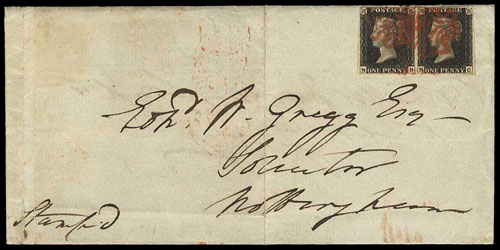 POSTAGE POSTAGE
ONE PENNY ONE PENNY
W. Gregg Esq
Solicitor
Nottingham
Stamp'd